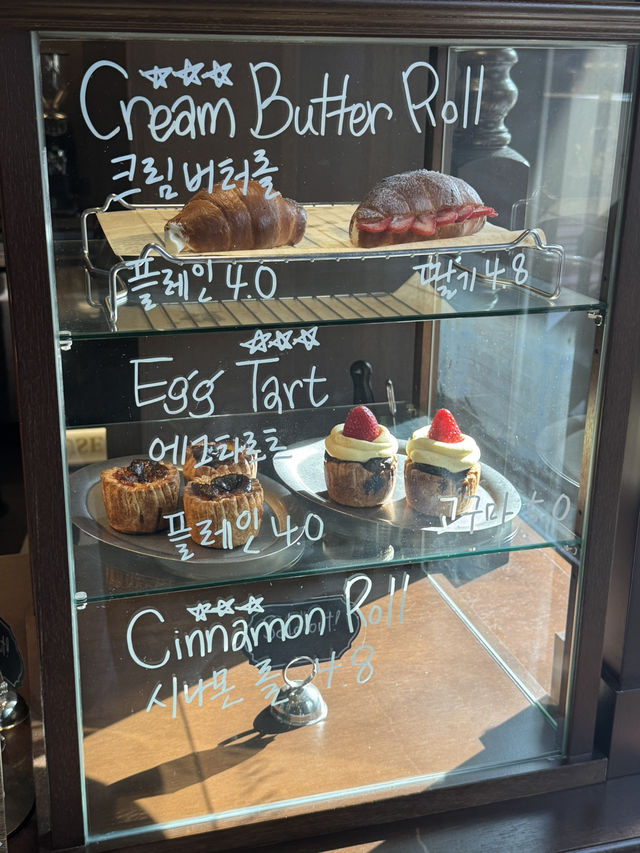 Cream Butter Roll
크림버터롤
플레인 4.0
딸기 4.8
Egg Tart
에그타르트
플레인 4.0
고구마 5.0
Cinnamon Roll
시나몬 롤 4.8